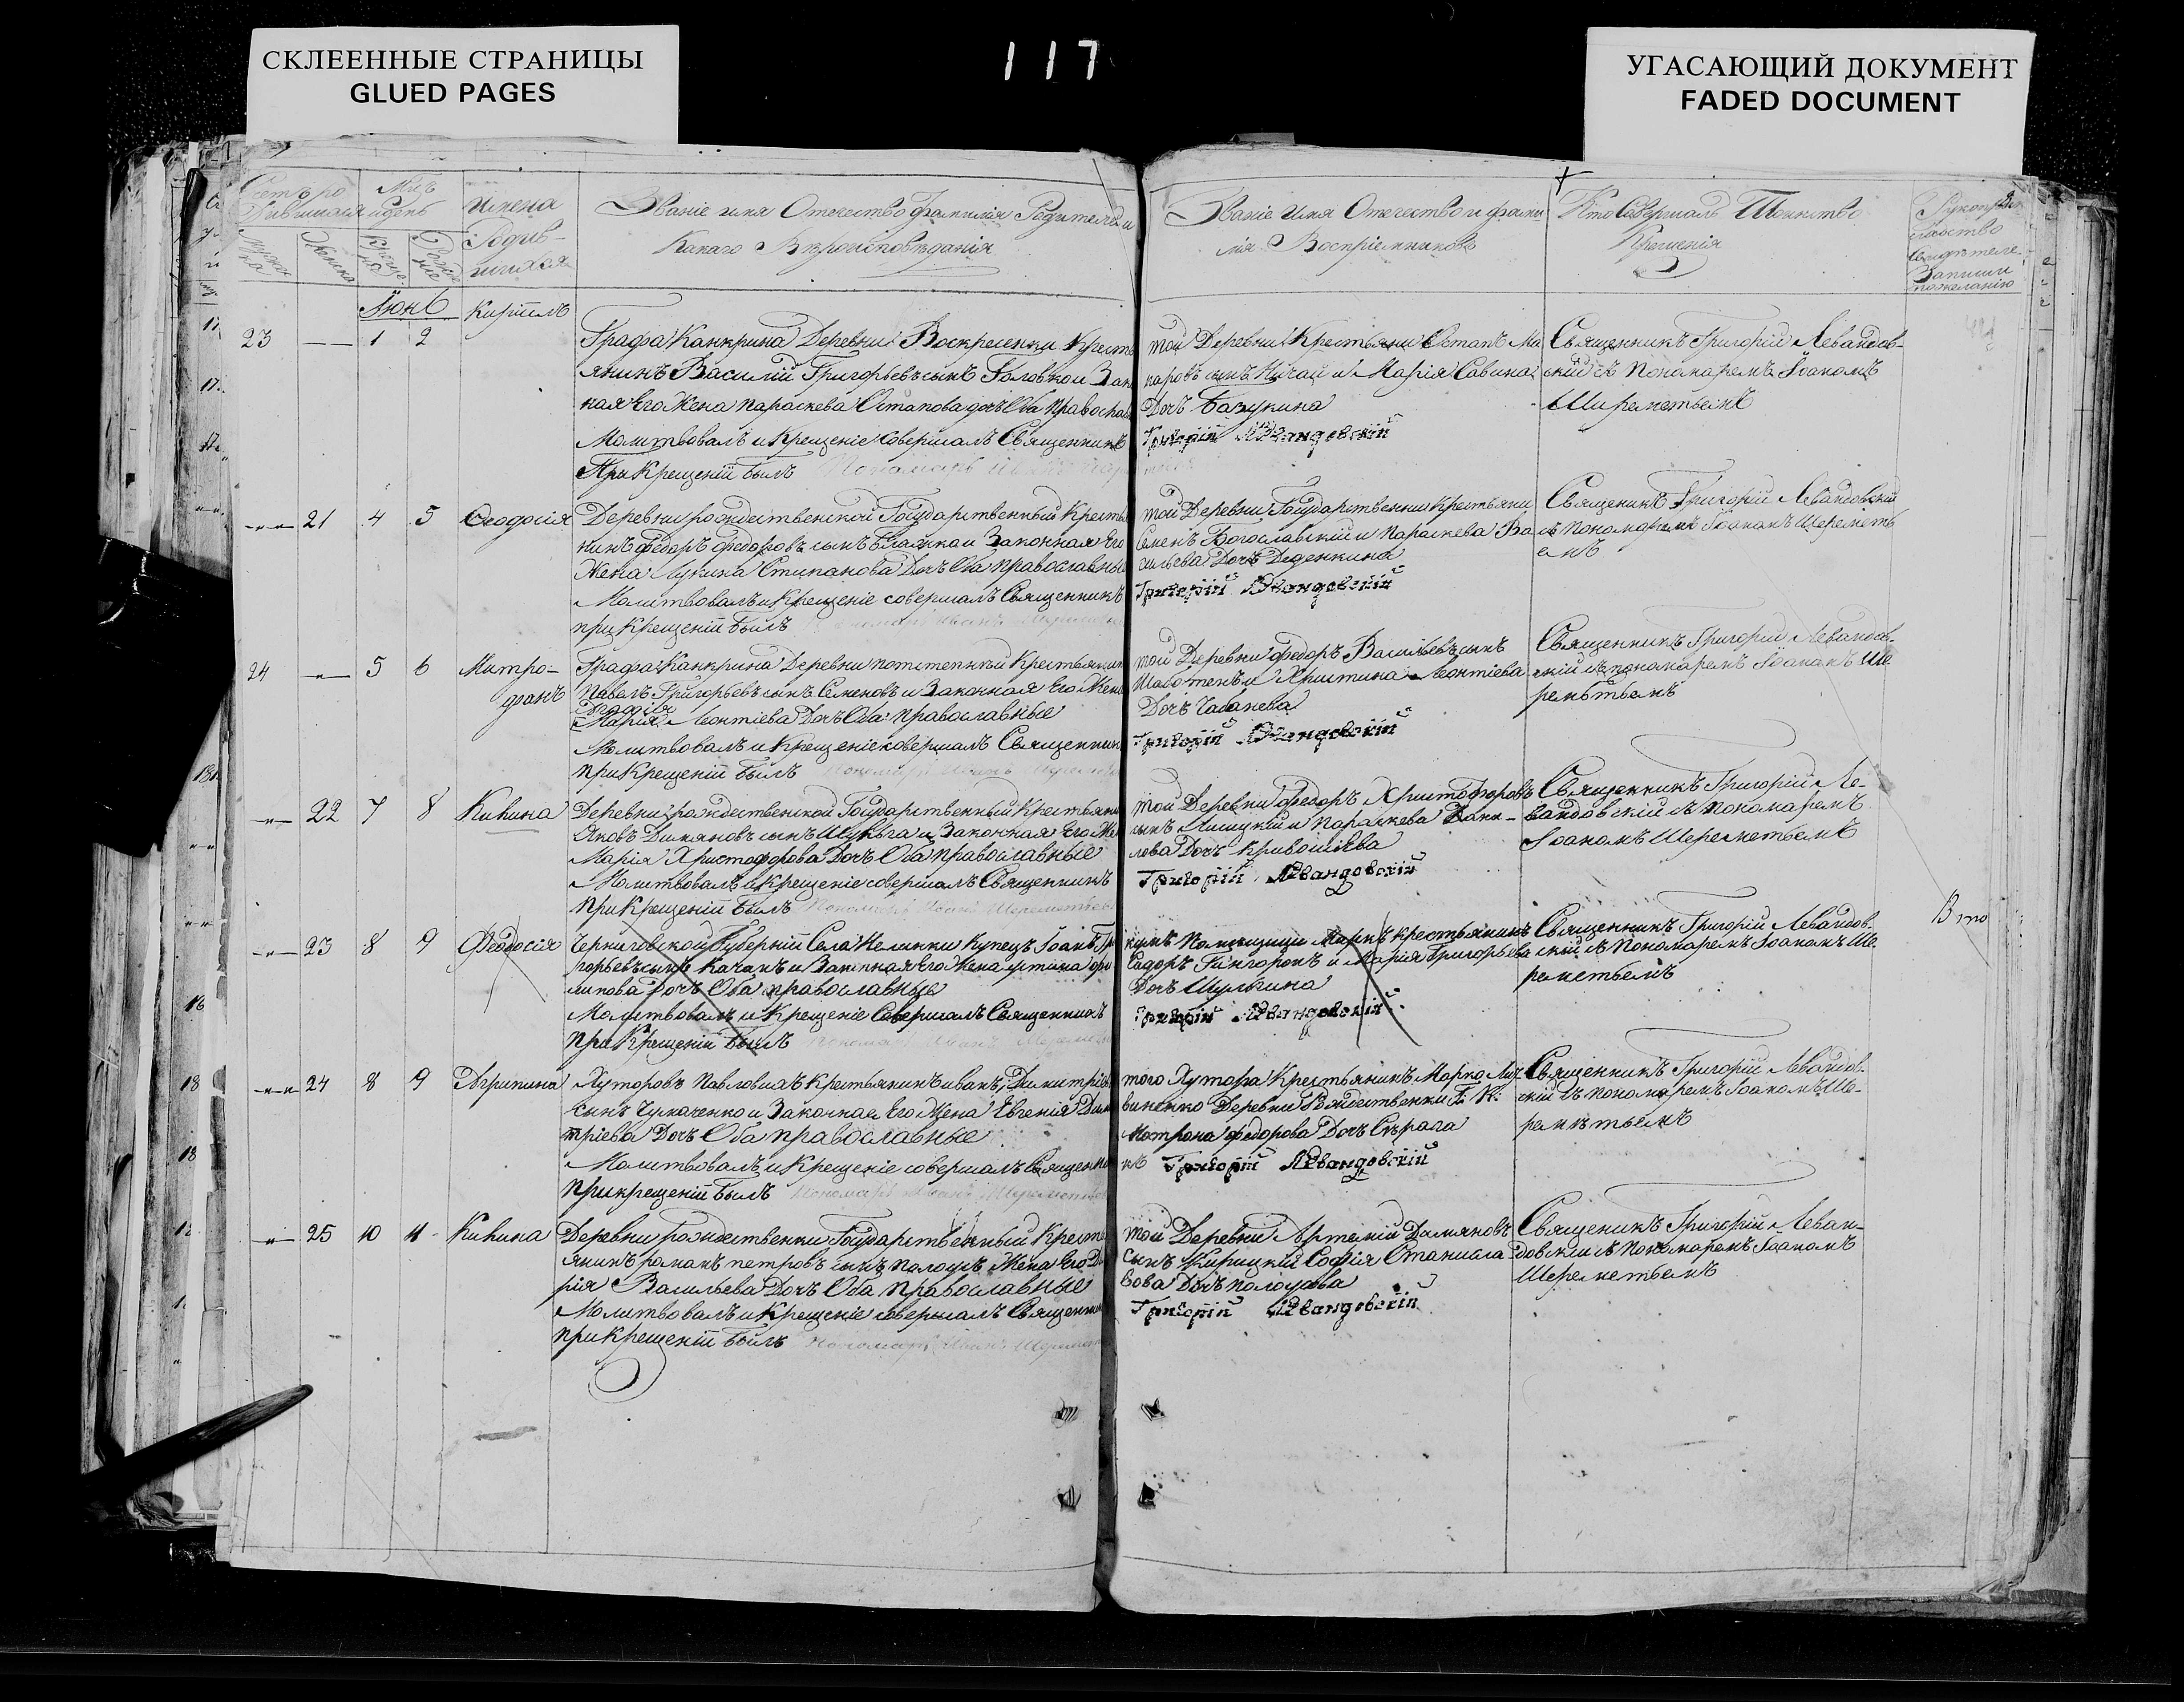 СКЛЕЕННЫЕ СТРАНИЦЫ
GLUED PAGES
117
УГАСАЮЩИЙ ДОКУМЕНТ
FADED DOCUMENT
Званіе имя Отечество и фамилія Родителей и
Какаго Вѣроисповѣданія
Званіе имя Отечество и фами
лія Воспріемниковъ
Кто Совершалъ Таинство
Крещенія
Рукопри
кладство
Свидѣтеле
Записи
по желанію
Имена
Родив-
шихся
Іюнь
23 1 2 Кириллъ
Графа Канкрина Деревни Воскресенки Кресть
янинъ Василій Григорьевъ сынъ Головко и Закон
ная Его Жена Параскева Остапова дочь Оба Православ
Молитвовалъ и Крещеніе совершалъ Священникъ
При Крещеніи былъ
той Деревни Крестьяни Остапъ Ма
каровъ сынъ Нычай и Марія Савина
Дочь Базукина
Григорій Левандовскій
Священникъ Григорій Левандов-
скій съ Пономаремъ Іоаномъ
Шереметьемъ
21 4 5 Феодосія
Деревни рождественской Государственный Кресть
нинъ Федоръ Федоровъ сынъ Блажко и Законная Его
Жена Лукина Стипанова Дочь Оба православные
Молитвовалъ и Крещеніе совершалъ Священникъ
при Крещеніи былъ
той Деревни Государственни Крестьяни
Семенъ Богославскій и Параскева Ва
сильева Дочь Деденкина
Григорій Левандовскій
Священикъ Григорій Левандовскій
съ Пономаремъ Іоаномъ Шереметь
емъ
24 5 6 Митро-
фанъ
Графа Канкрина Деревни Крестьянин
Павелъ Григорьевъ сынъ Семеновъ и Законная Его Жена
Марія Леонтіева Дочь Оба православные
Молитвовалъ и Крещеніе совершалъ Священник
при Крещеніи былъ Пономарь Иванъ
той Деревни Федоръ Васильевъ сынъ
и Христина Леонтіева
Дочь Чабанева
Григорій Левандовскій
Священникъ Григорій Левандов-
скій съ пономаремъ Іоанамъ Ше
реметьемъ
22 7 8 Килина
Деревни рождественской Государственный Крестьяни
Яковъ Димяновъ сынъ Шульга и Законная Его Же
Марія Христофорова Дочь Оба православные
Молитвовалъ и Крещеніе совершалъ Священникъ
при Крещеніи былъ Пономарь Иванъ Шереметьев
той Деревни Федоръ Христофоровъ
сынъ Лисицкій и Параскева Дани-
лова Дочь Кривошіева
Григорій Левандовскій
Священникъ Григорій Ле-
вандовскій съ пономаремъ
Іоаномъ Шереметьемъ
В то
23 8 9 Феодосія
Черниговской Губерніи Села Купецъ Іоанъ Гри
горьевъ сынъ Качанъ и Законная Его Жена устина фи
липова дочь Оба православные
Молитвовалъ и Крещеніе Совершалъ Священникъ
при Крещеніи былъ Пономарь Иванъ
Помещици крестьянинъ
и Марія Григорьева
Дочь Шулкина
Григорій Левандовскій
Священникъ Григорій Левандов-
скій съ Пономаремъ Іоаномъ Ше
реметьемъ
24 8 9 Агрипина
Хуторовъ Павловихъ Крестьянинъ иванъ Димитріев
сынъ Чумаченко и Законная Его Жена Евгенія Дими
тріева Дочь Оба православные
Молитвовалъ и Крещеніе совершалъ Священни
при крещеніи былъ Пономарь Иванъ Шереметьев
того Хутора Крестьянинъ Марко Лит
виненко Деревни Рождественки Г. К.
Матрона Федорова Дочь Сѣрага
къ Григорій Левандовскій
Священикъ Григорій Левандов-
скій съ пономаремъ Іоаномъ Ше-
реметьемъ
25 10 11 Килина
Деревни рождественки Государственный Крест
янинъ романъ петровъ сынъ Палоусъ Жена Его Да
рія Васильева Дочь Оба Православные
Молитвовалъ и Крещеніе совершалъ Священник
при Крещеніи былъ Пономарь Иванъ Шеремет
той Деревни Артемій Дамяновъ
сынъ Жирицкій Софія Станисла
вова Дочь
Григорій Левандовскій
Священикъ Григорій Леван-
довскій съ Пономаремъ Іоаномъ
Шереметьемъ